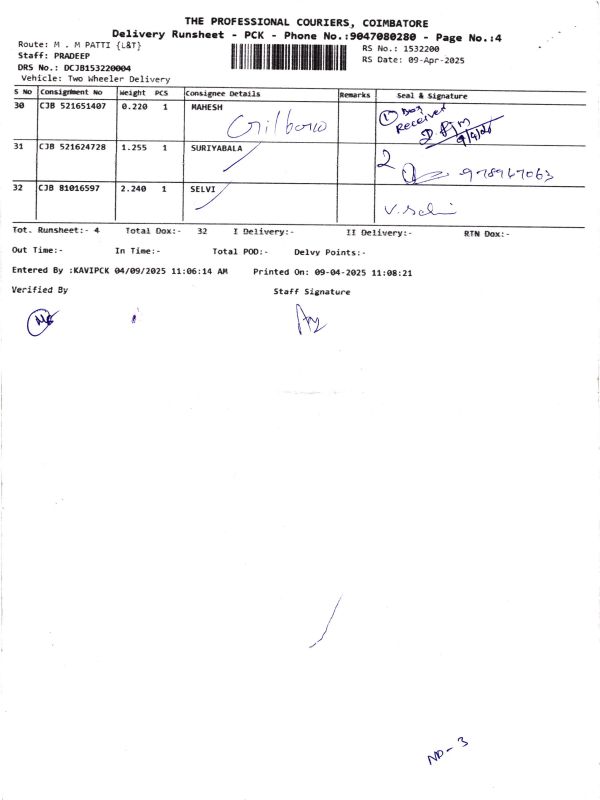 THE PROFESSIONAL COURIERS, COIMBATORE
Delivery Runsheet - PCK - Phone No.:9047080280 - Page No.:4
Route: M . M PATTI {L&T}
RS No.: 1532200
Staff: PRADEEP
RS Date: 09-Apr-2025
DRS No.: DCJB153220004
Vehicle: Two Wheeler Delivery
S No Consignment No Weight PCS Consignee Details Remarks Seal & Signature
30 CJB 521651407 0.220 1 MAHESH
1 Box
Received
31 CJB 521624728 1.255 1 SURIYABALA
2
32 CJB 81016597 2.240 1 SELVI
Tot. Runsheet:- 4 Total Dox:- 32 I Delivery:- II Delivery:- RTN Dox:-
Out Time:- In Time:- Total POD:- Delvy Points:-
Entered By :KAVIPCK 04/09/2025 11:06:14 AM Printed On: 09-04-2025 11:08:21
Verified By Staff Signature
ND - 3